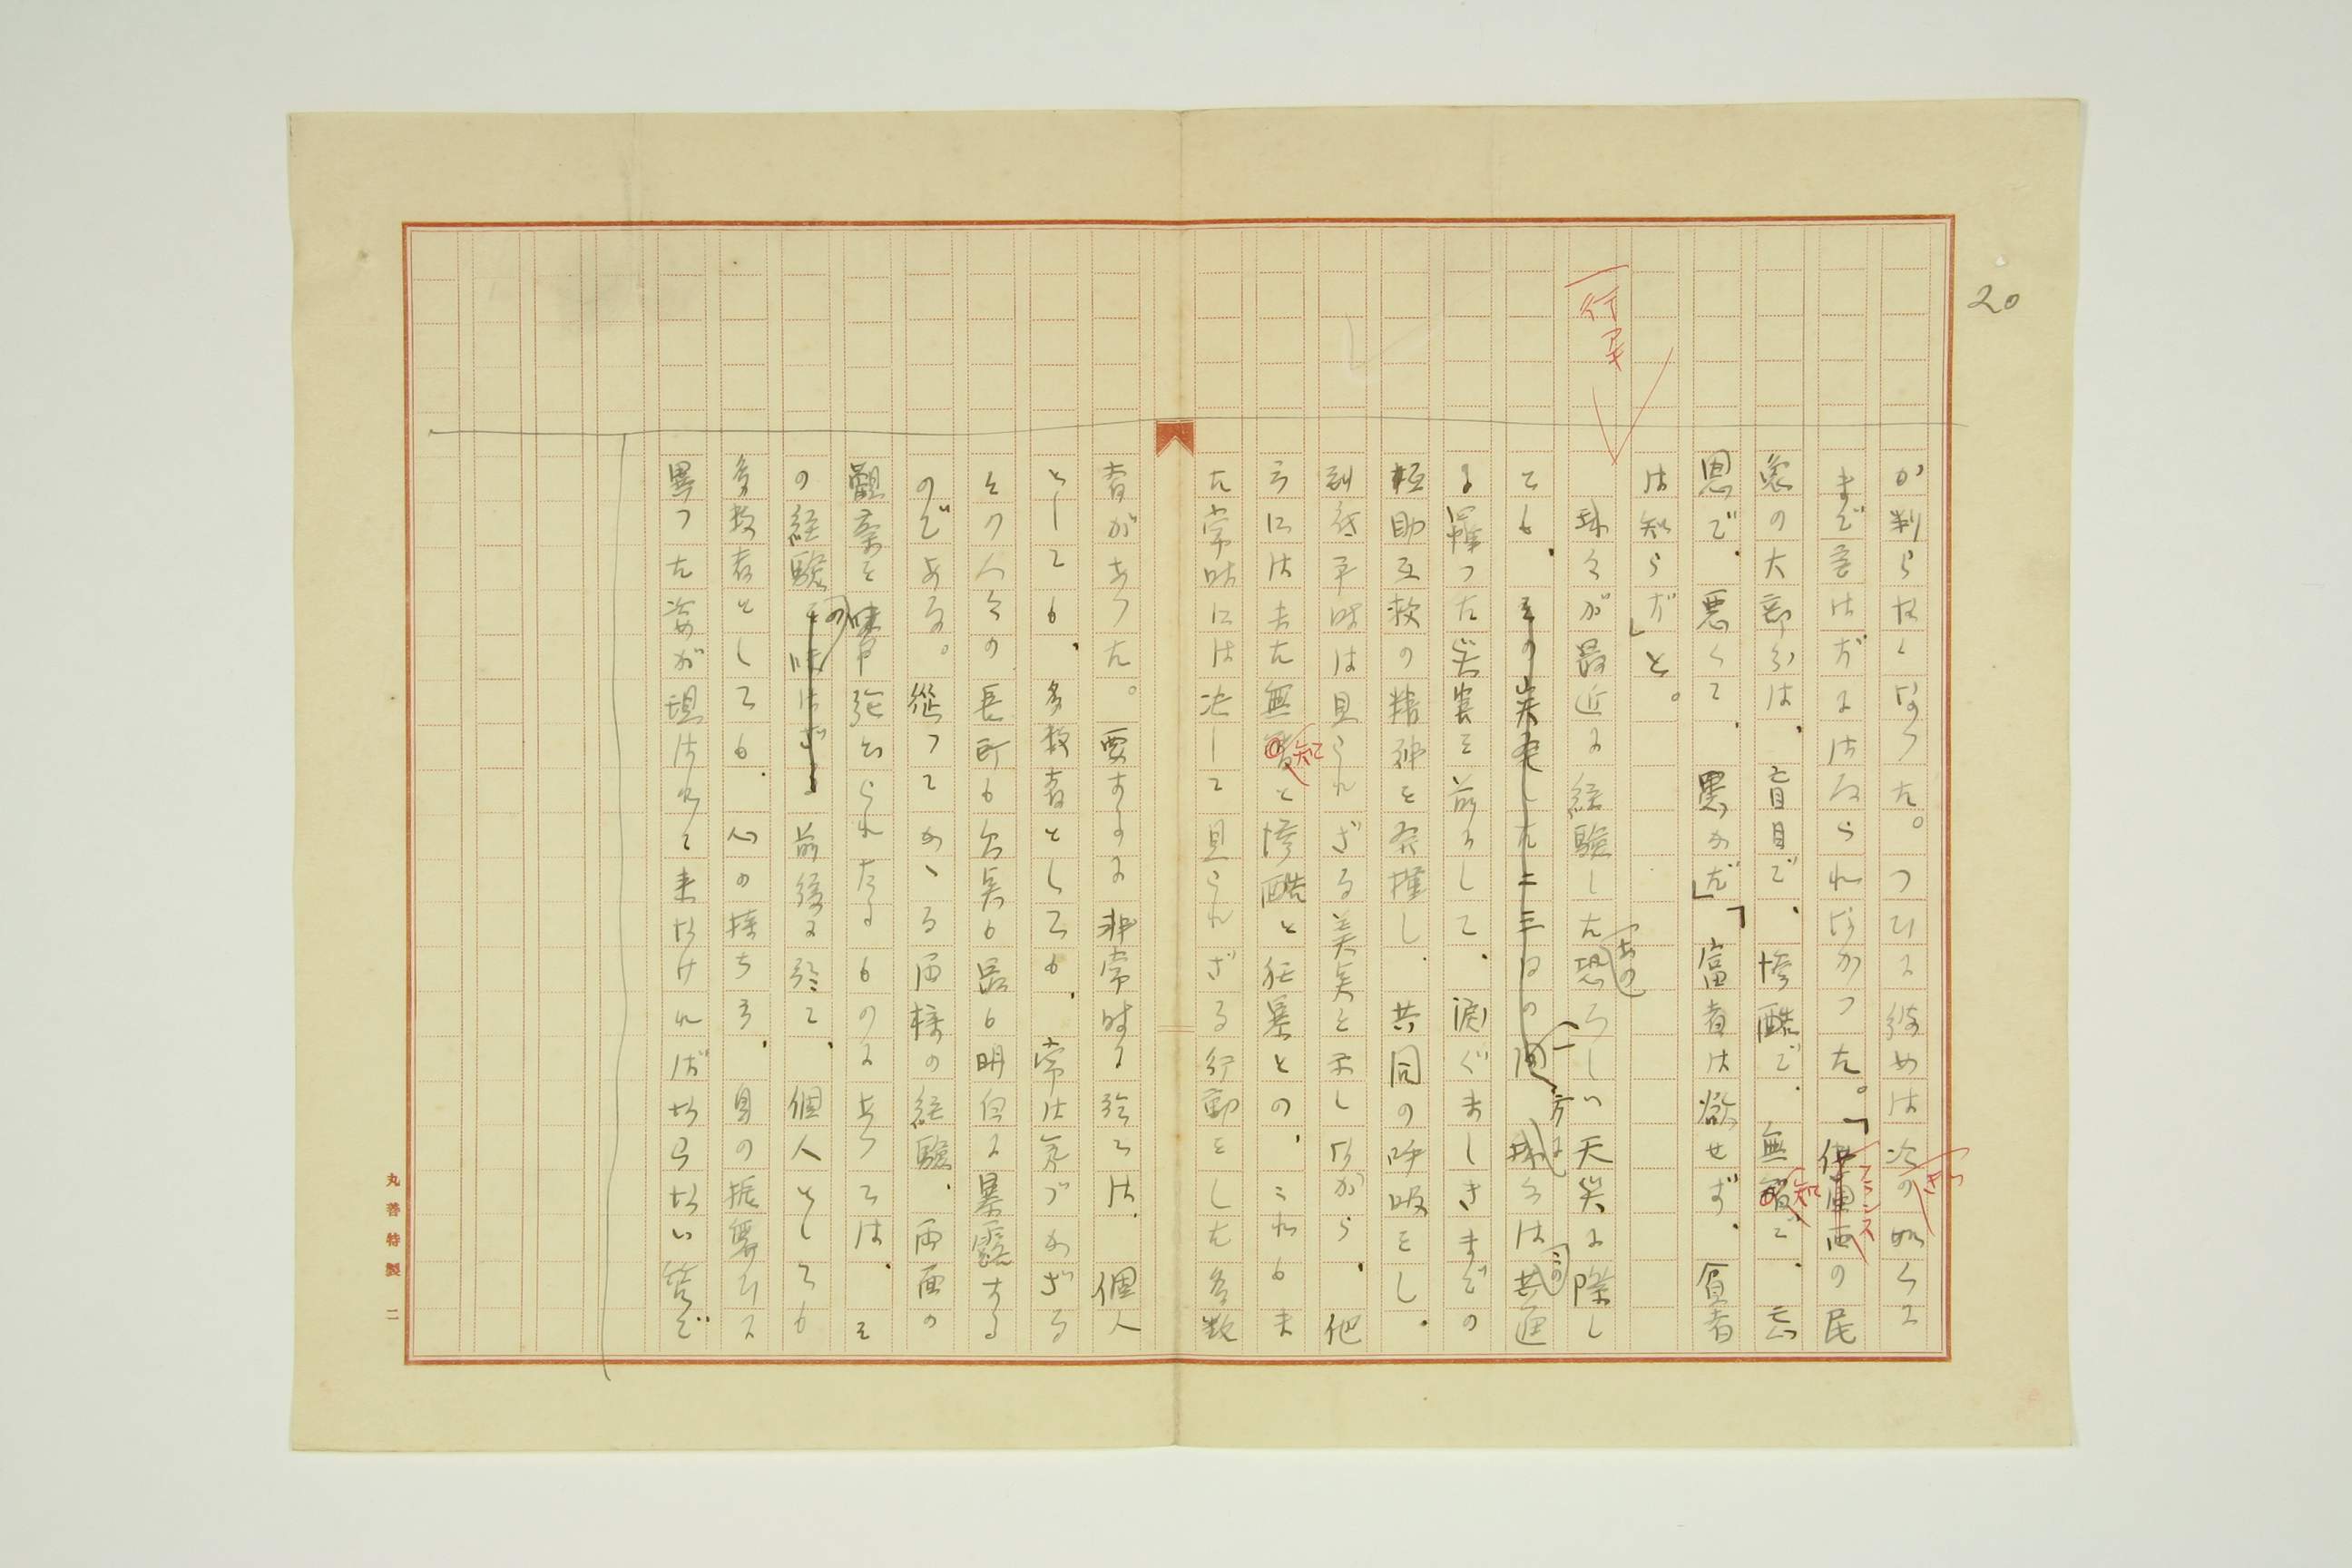 20
か判らなくなつた。つひに彼めは次の如くに
きつ
まで言はずにはゐられなかつた。「佛蘭西の民
フランス
衆の大部分は、盲目で、惨酷で、無智で、忘
知
恩で、悪くて、黒めだ」「富者は慾せず、貧者
は知らず」と。
行アキ
我々が最近に経験した恐ろしい天災に際し
あの
ても、その災死した二三日の間、我々は共通
一方に
この
に罹つた災害を前にして、涙ぐましきまでの
相助互救の精神を発揮し、共同の呼吸をし、
到底平時は見られざる美点を示しながら、他
方には又無智と惨酷と狂暴との、これも又
知
た常時には決して見られざる行動をした多数
者があつた。要するに非常時に於ては、個人
としても、多数者としても、常は気づかざる
その人々の長所も欠点も最も明白に暴露する
のである。従つてかゝる両様の経験、両面の
觀察を等しく強ひられたるものにあつては、そ
の経験の前後に於て、個人としても
多数者としても、心の持ち方、身の振舞ひに
異つた姿が現はれて来なければならない筈で
丸善特製 二